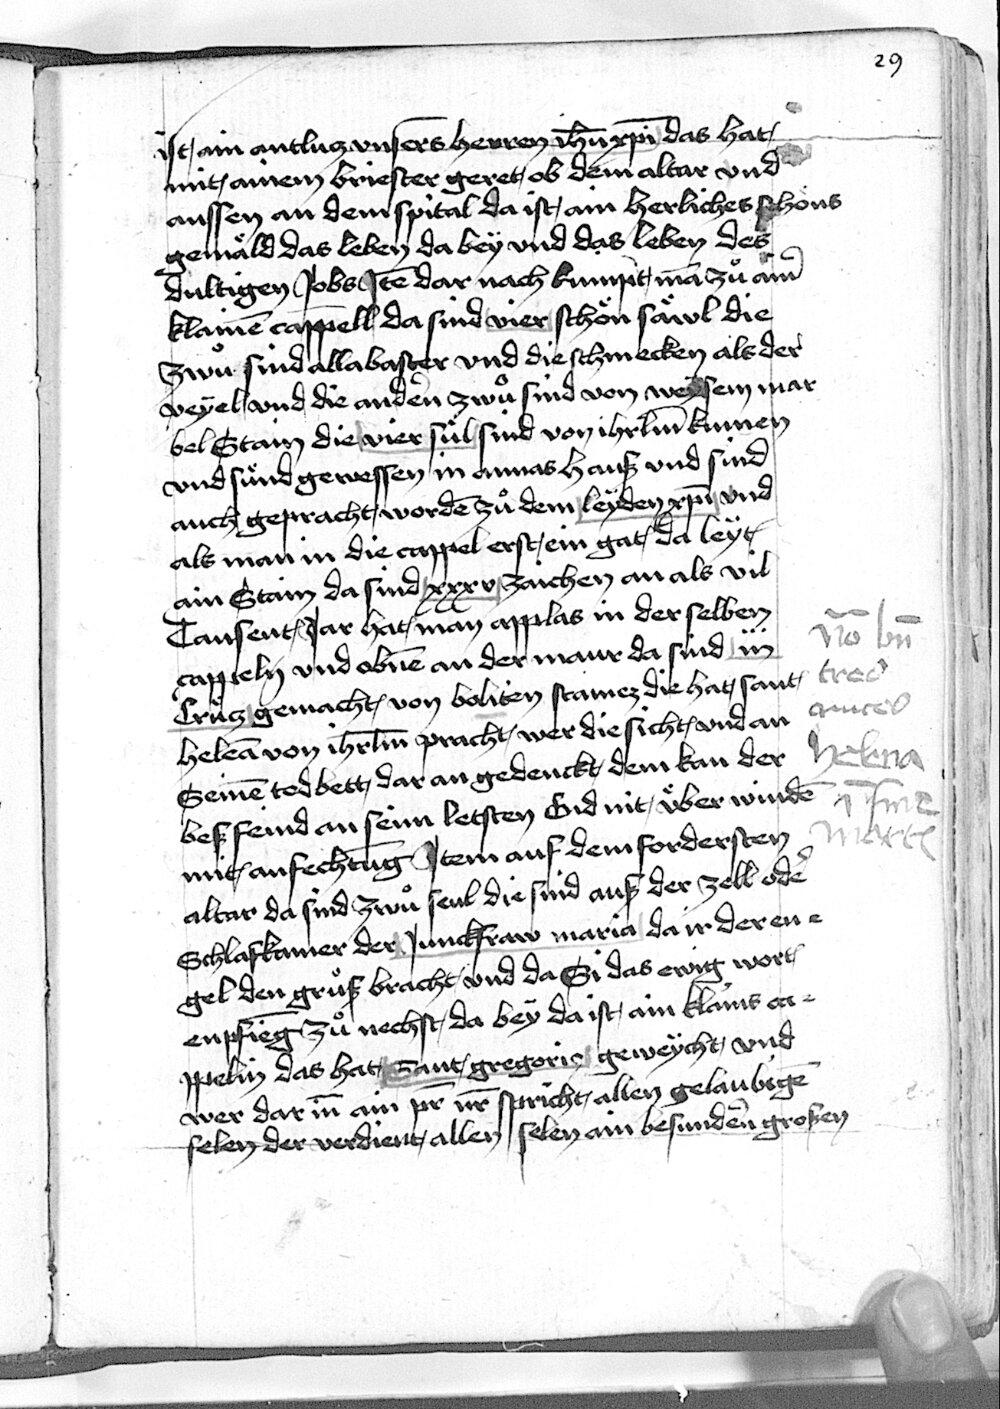 29
ist ain antlucz vnsers herren ih̄u xp̄i das hat
mit ainem briester geret ob dem altar vnd
aussen an dem spital da ist ain herliches schöns
gemäld das leben da bey vnd das leben des
dultigen Jobs Itē dar nach kumpt mā zů aim̄
klainē cappell da sind vier schön säwl die
zwů sind allabaster vnd die schmecken als der
veyel vnd die andern zwů sind von weysem mar
bel Stain die vier sül sind von ihrlm̄ kumen
vnd sünd gewessen in annas hauß vnd sind
auch gepracht wordē zů dem leyden xp̄i vnd
als man in die cappel erst ein gat da leyt
ain Stain da sind xxxv zaichen an als vil
Tausent Jar hat man applas in der selben
cappeln vnd obnē an der maur da sind iii
Crücz gemacht von boliten stainez die hat sant
heleā von ihrlm̄ pracht wer die sicht vnd an
Seinē tod bett dar an gedenckt dem kan der
beß feind an seim letsten End nit über windē
mit anfechtūg Item auf dem fordersten
altar da sind zwů seul die sind auß der zell oder
Schlafkamer der Junckfraw maria da ir der en=
gel den grůß bracht vnd da Si das ewig wort
enpfieng zů nechst da bey da ist ain klains ca=
ppelin das hat Sant gregoriᵒ geweycht vnd
wer dar in̄ ain pr̄ nr̄ spricht allen gelaubigē
selen der verdient allen selen ain besundern großen
helena